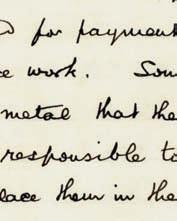 for payment
work. Som
metal that the
responsible to
lace them in the